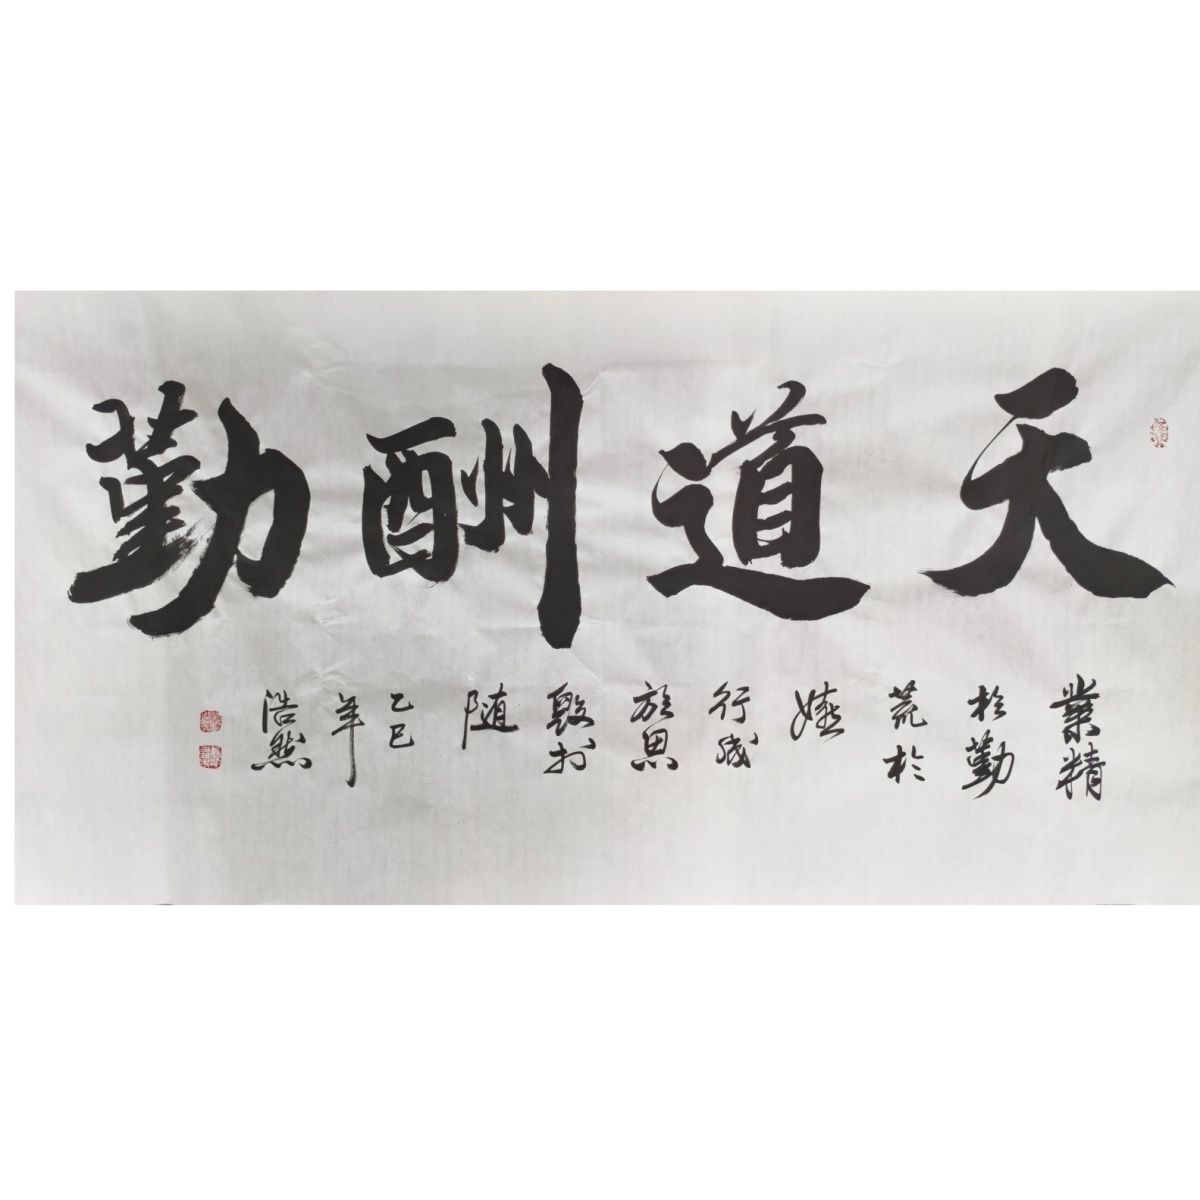 天道酬勤
業精
於勤
荒於
嬉
行成
於思
毀於
隨
乙巳
年
浩然